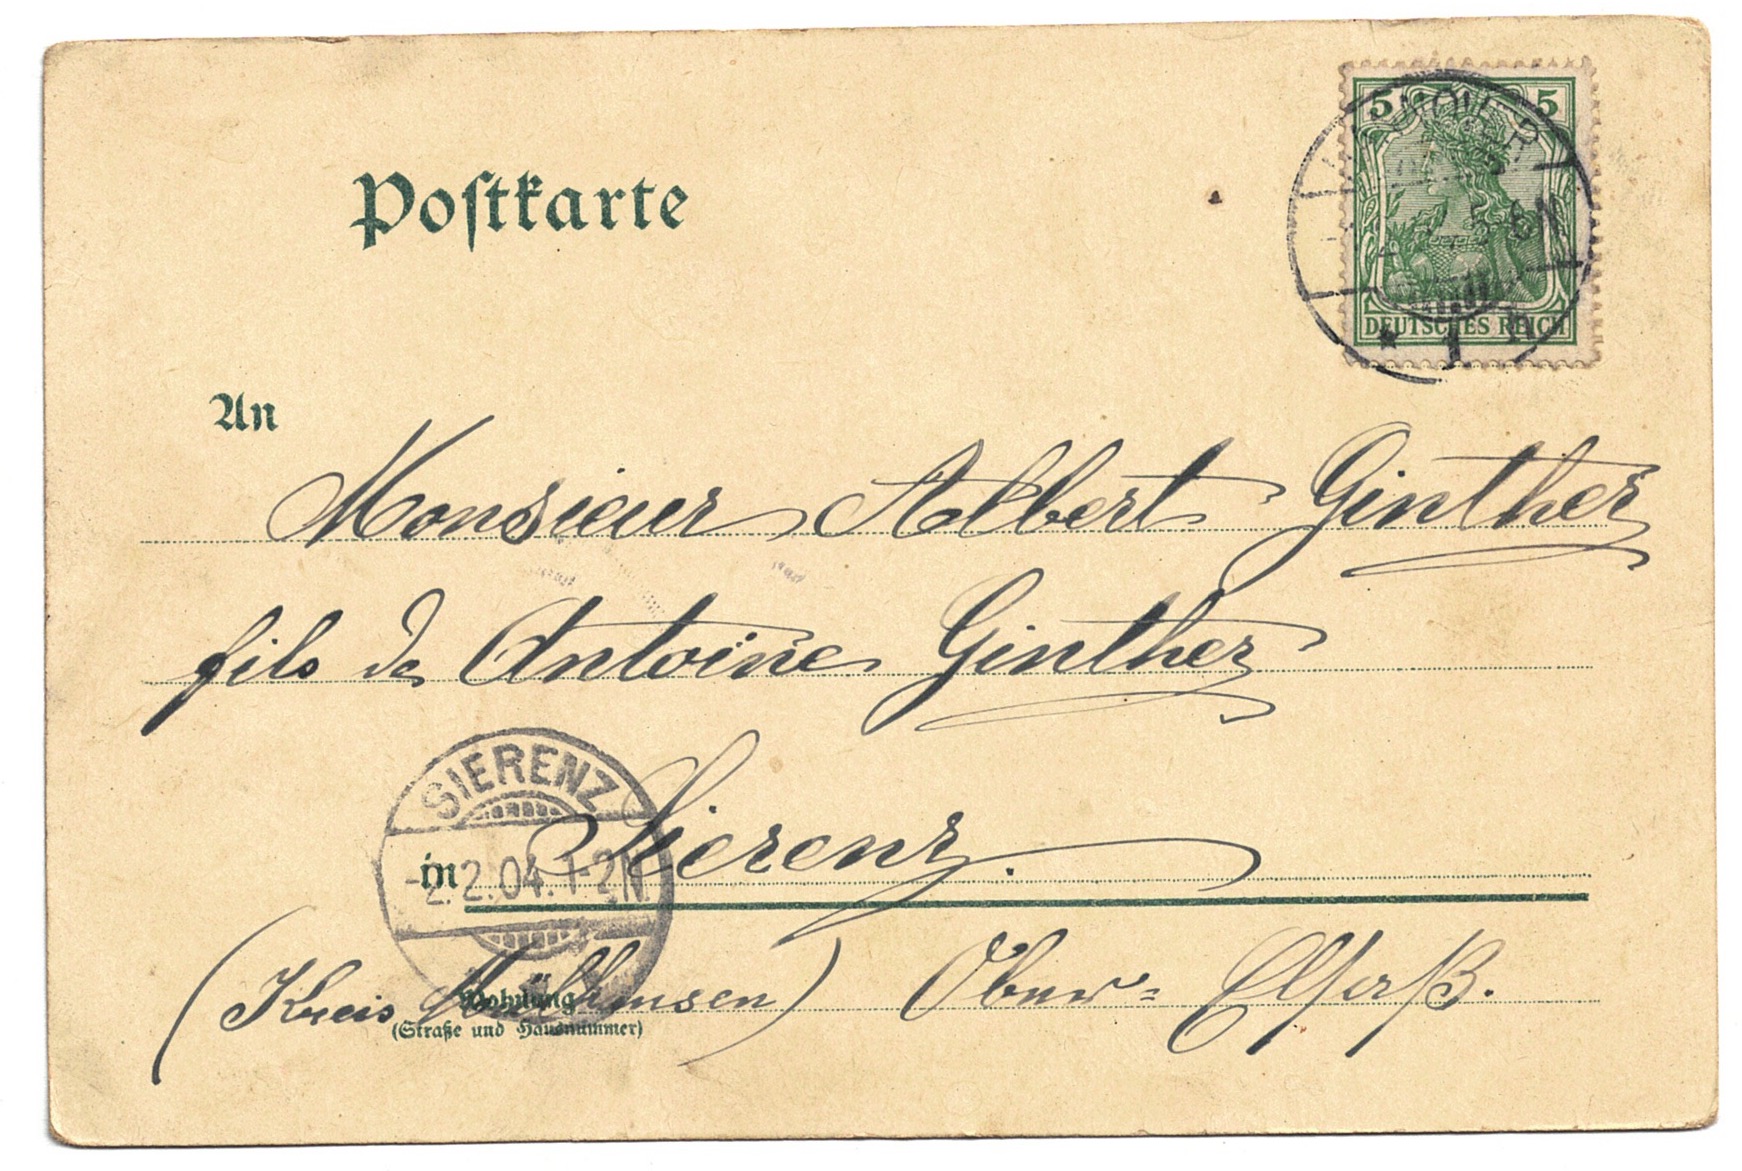 Postkarte
5 5
HANNOVER
5-6N
* 1 h
DEUTSCHES REICH
An
Monsieur Albert Ginther
fils de Antoine Ginther
SIERENZ
-2.2.04.1-2N
in Sierenz.
(Kreis Mülhausen) Ober-Elsaß.
Wohnung
(Straße und Hausnummer)